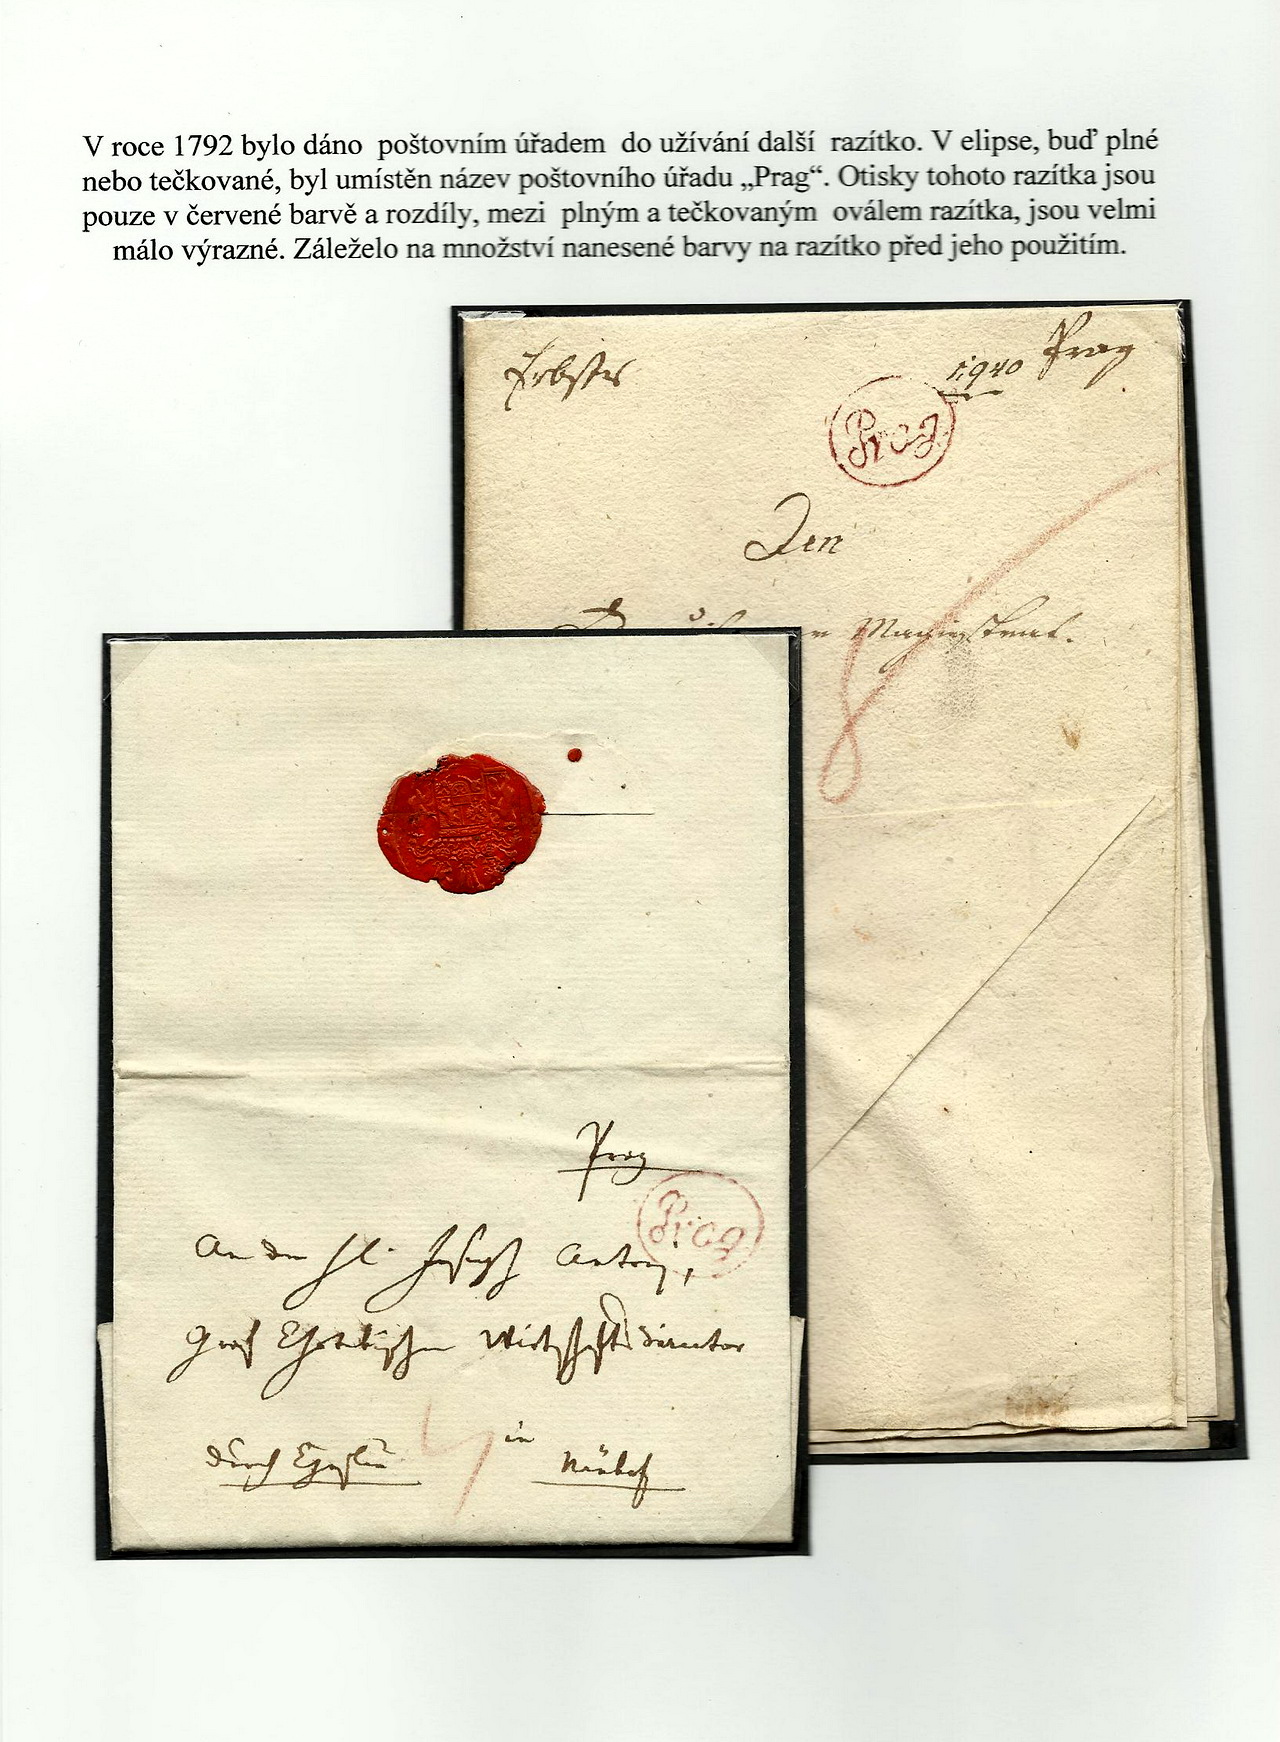 V roce 1792 bylo dáno poštovním úřadem do užívání další razítko. V elipse, buď plné
nebo tečkované, byl umístěn název poštovního úřadu „Prag“. Otisky tohoto razítka jsou
pouze v červené barvě a rozdíly, mezi plným a tečkovaným oválem razítka, jsou velmi
málo výrazné. Záleželo na množství nanesené barvy na razítko před jeho použitím.
Prag
Prag
Den
Magistrat.
Prag
Prag
An den Joseph Anton,
Graf Wirtschafts Director
durch in